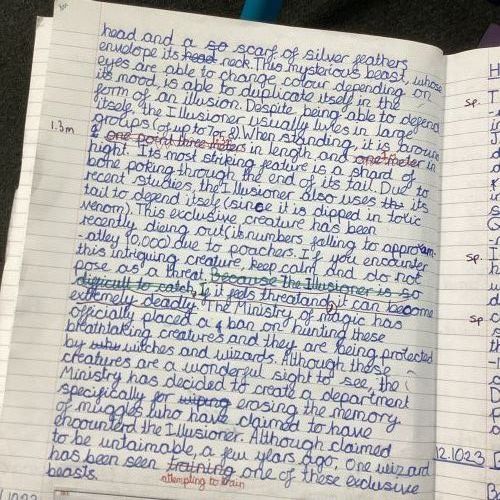 head and a so scarf of silver feathers
envelope its head neck. This mysterious beast, whose
eyes are able to change colour depending on
its mood, is able to duplicate itself in the
form of an illusion. Despite being able to defend
itself, the Illusioner usually lives in large
groups (of up to 7 or 8). When standing, it is around
1.3m
& one point three meters in length and one meter in
hight. Its most striking feature is a shard of
bone poking through the end of its tail. Due to
recent studies, the Illusioner also uses its
tail to defend itself (since it is dipped in toxic
venom). This exclusive creature has been
recently dieing out (its numbers falling to approxam-
-atley 10,000) due to poachers. If you encounter
this intriguing creature, keep calm and do not
pose as a threat. Because the Illusioner is so
difficult to catch, I if it feels threatand, it can become
extremely deadly. The Ministry of magic has
officially placed a ban on hunting these
breathtaking creatures and they are being protected
by witches and wizards. Although these
creatures are a wonderful sight to see, the
Ministry has decided to create a department
specifically for wiping erasing the memory
of muggles who have claimed to have
encounterd the Illusioner. Although claimed
to be untaimable, a few years ago, one wizard
has been seen training one of these exclusive
attempting to train
beasts.
sp.
sp.
sp.
12.10.23